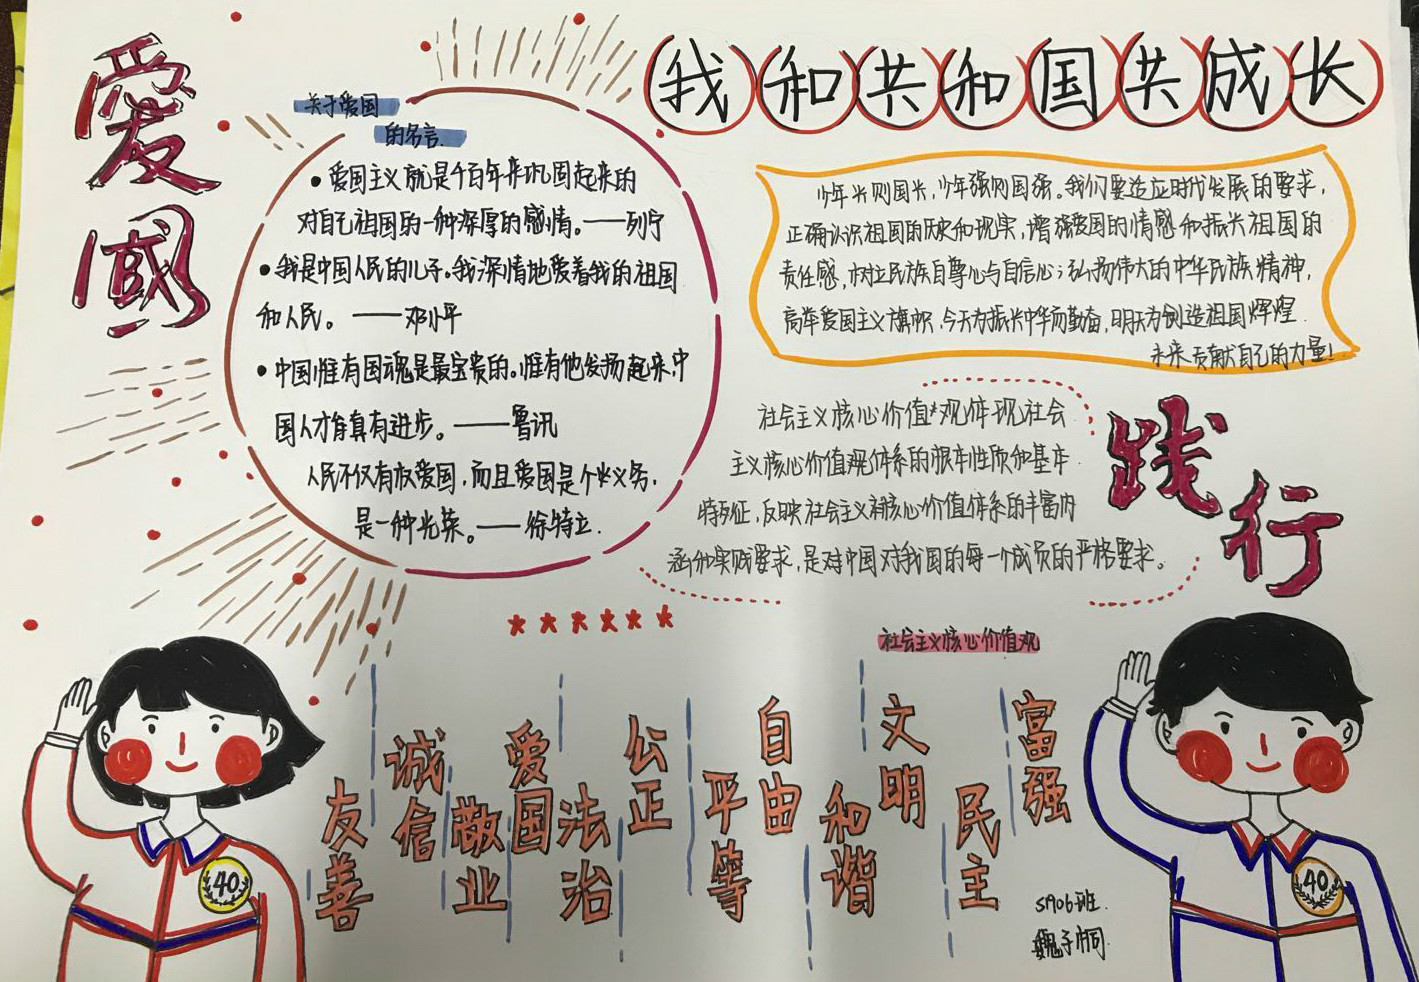 愛國
我和共和国共成长
关于爱国
的名言
•爱国主义就是千百年来巩固起来的
对自己祖国的一种深厚的感情。——列宁
•我是中国人民的儿子。我深情地爱着我的祖国
和人民。——邓小平
•中国惟有国魂是最宝贵的。惟有他发扬起来,中
国人才有真有进步。——鲁讯
人民不仅有权爱国,而且爱国是个义务,
是一种光荣。——徐特立.
少年兴则国兴,少年强则国强。我们要适应时代发展的要求,
正确认识祖国的历史和现实,增强爱国的情感和振兴祖国的
责任感,树立民族自尊心与自信心;弘扬伟大的中华民族精神,
高举爱国主义旗帜,今天为振兴中华而勤奋,明天为创造祖国辉煌
未来贡献自己的力量!
践行
社会主义核心价值观体现社会
主义核心价值观体系的根本性质和基本
特征,反映社会主义核心价值体系的丰富内
涵和实践要求,是对中国对我国的每一个成员的严格要求。
社会主义核心价值观
富强
民主
文明
和谐
自由
平等
公正
法治
爱国
敬业
诚信
友善
40
40
S1906班.
魏子桐